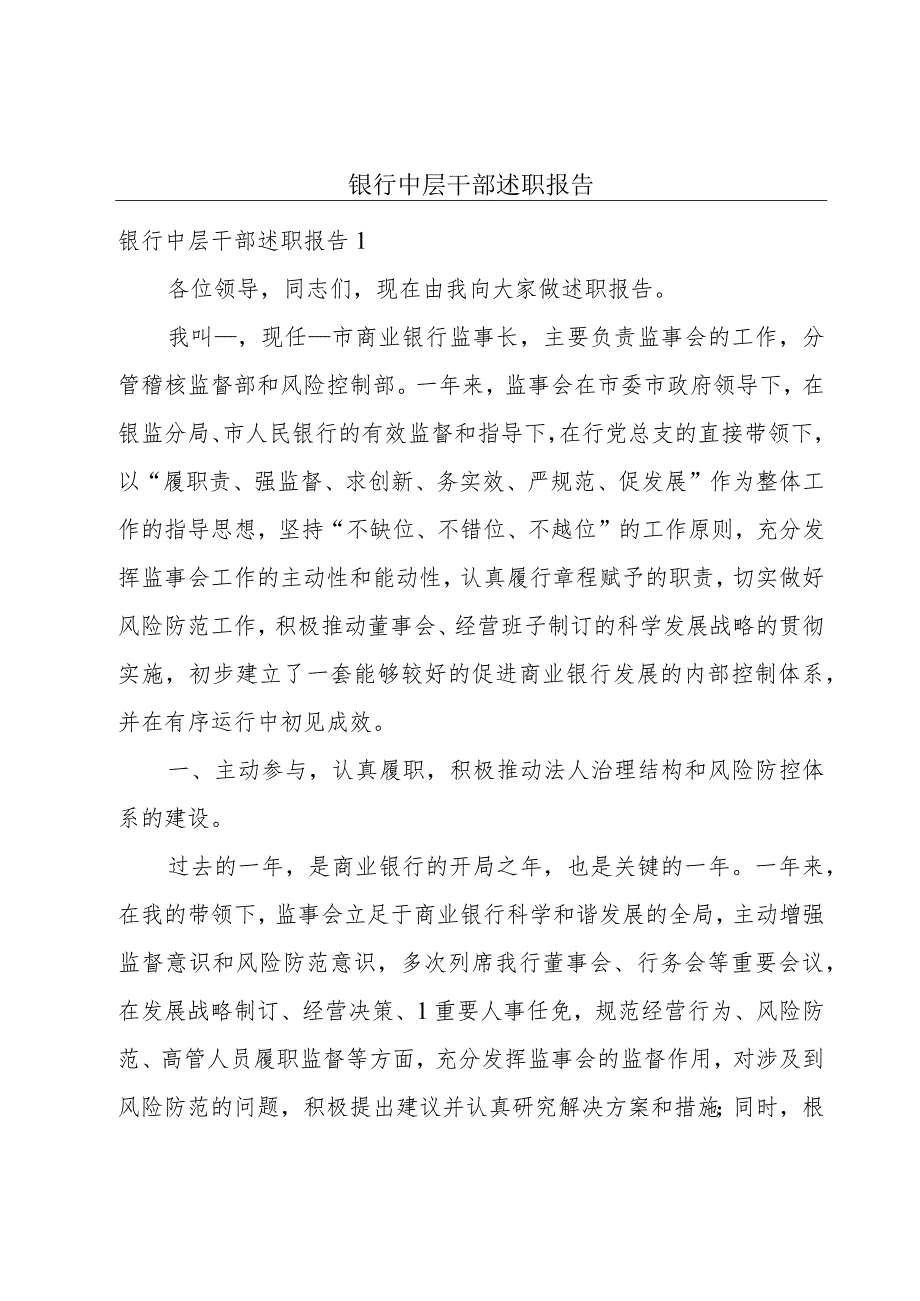 银行中层干部述职报告
银行中层干部述职报告1
各位领导，同志们，现在由我向大家做述职报告。
我叫—，现任—市商业银行监事长，主要负责监事会的工作，分
管稽核监督部和风险控制部。一年来，监事会在市委市政府领导下，在
银监分局、市人民银行的有效监督和指导下，在行党总支的直接带领下，
以“履职责、强监督、求创新、务实效、严规范、促发展”作为整体工
作的指导思想，坚持“不缺位、不错位、不越位”的工作原则，充分发
挥监事会工作的主动性和能动性，认真履行章程赋予的职责，切实做好
风险防范工作，积极推动董事会、经营班子制订的科学发展战略的贯彻
实施，初步建立了一套能够较好的促进商业银行发展的内部控制体系，
并在有序运行中初见成效。
一、主动参与，认真履职，积极推动法人治理结构和风险防控体
系的建设。
过去的一年，是商业银行的开局之年，也是关键的一年。一年来，
在我的带领下，监事会立足于商业银行科学和谐发展的全局，主动增强
监督意识和风险防范意识，多次列席我行董事会、行务会等重要会议，
在发展战略制订、经营决策、1重要人事任免，规范经营行为、风险防
范、高管人员履职监督等方面，充分发挥监事会的监督作用，对涉及到
风险防范的问题，积极提出建议并认真研究解决方案和措施；同时，根